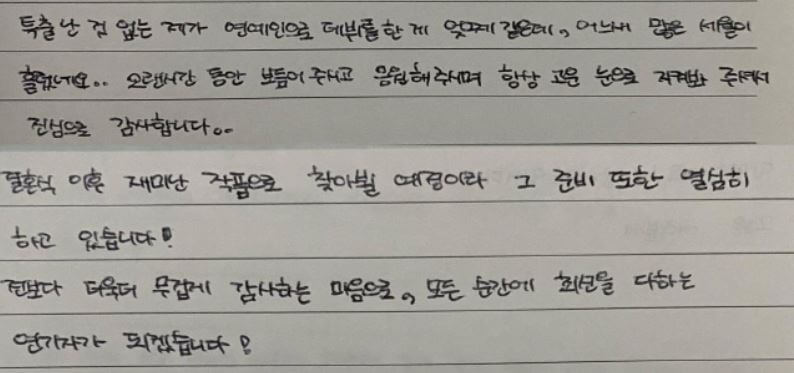 특출난 것 없는 제가 연예인으로 데뷔를 한 게 엊그제 같은데, 어느새 많은 세월이
흘렀네요.. 오랜시간 동안 보듬어 주시고 응원해 주시며 항상 고운 눈으로 지켜봐 주셔서
진심으로 감사합니다..
결혼식 이후 재미난 작품으로 찾아뵐 예정이라 그 준비 또한 열심히
하고 있습니다!
전보다 더욱더 무겁게 감사하는 마음으로, 모든 순간에 최선을 다하는
연기자가 되겠습니다!